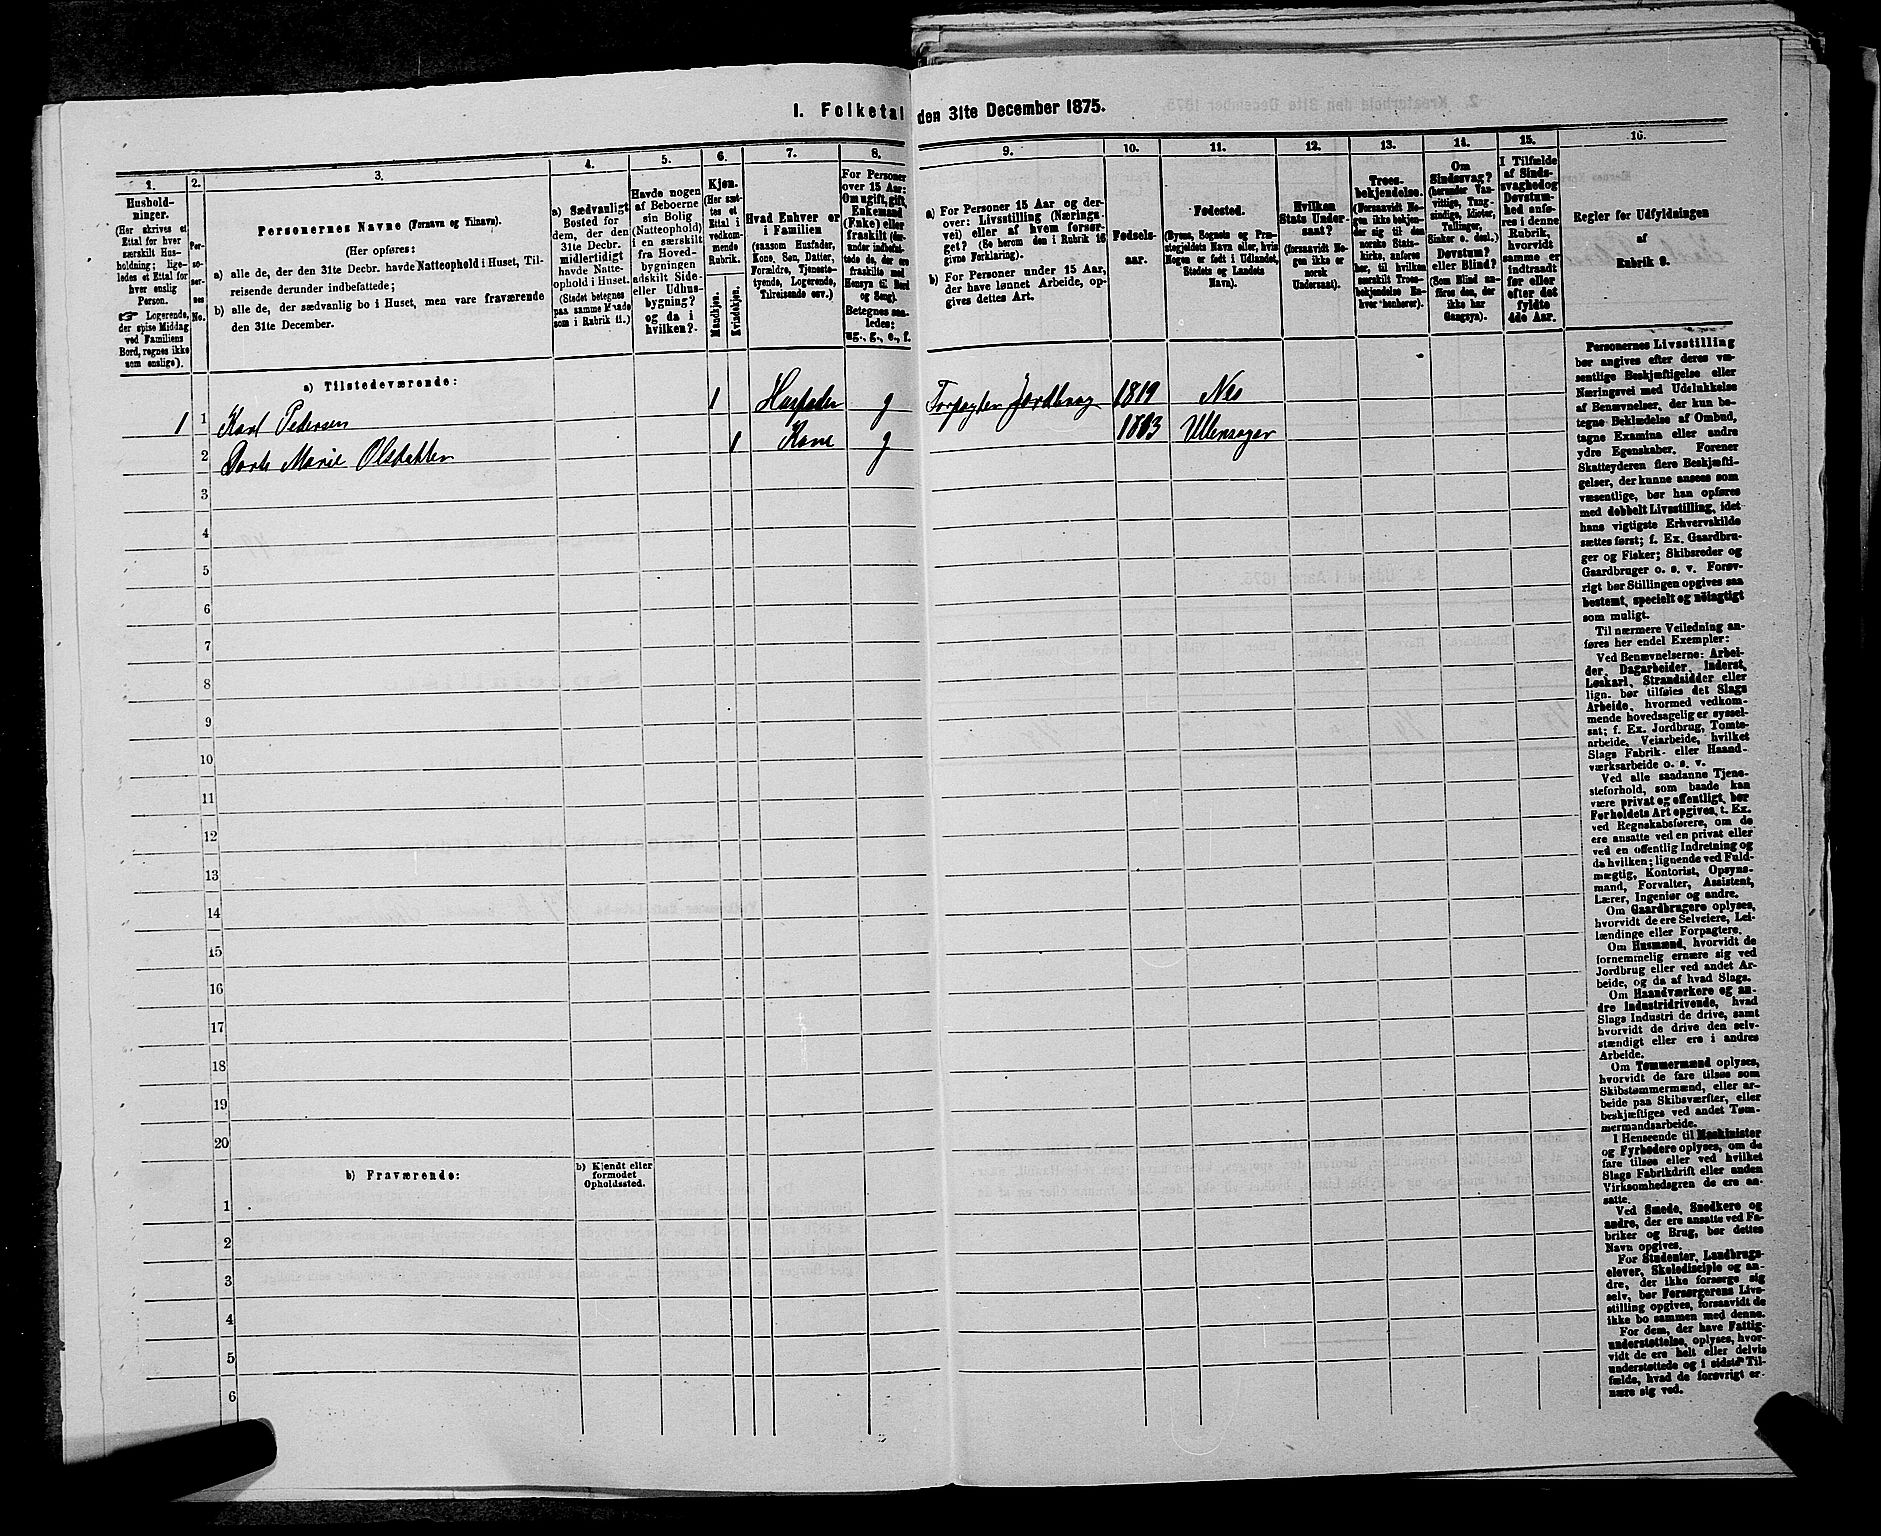 I. Folketal den 31te December 1875.
1. 2. 3. 4. 5. 6. 7. 8. 9. 10. 11. 12. 13. 14. 15. 16.
Hushold-
ninger.
(Her skrives et
Ettal for hver
særskilt Hus-
holdning; lige-
ledes et Ettal for
hver enslig
Person.
☞ Logerende,
der spise Middag
ved Familiens
Bord, regnes ikke
som enslige).
Per-
so-
ner-
nes
No.
Personernes Navne (Fornavn og Tilnavn).
(Her opføres:
a) alle de, der den 31te Decbr. havde Natteophold i Huset, Til-
reisende derunder indbefattede;
b) alle de, der sædvanlig bo i Huset, men vare fraværende
den 31te December.
a) Sædvanligt
Bosted for
dem, der den
31te Decbr.
midlertidigt
havde Natte-
ophold i Huset.
(Stedet betegnes
paa samme Maade
som i Rubrik 11.)
Havde nogen
af Beboerne
sin Bolig
(Natteophold)
i en særskilt
fra Hoved-
bygningen
adskilt Side-
eller Udhus-
bygning?
og da i
hvilken?
Kjøn.
(Her sæt-
tes et
Ettal i
vedkom-
mende
Rubrik.
Mandkjøn.
Kvindekjøn.
Hvad Enhver er
i Familien
(saasom Husfader,
Kone, Søn, Datter,
Forældre, Tjeneste-
tyende, Logerende,
Tilreisende osv.)
For Personer
over 15 Aar:
Om ugift, gift,
Enkemand
(Enke) eller
fraskilt (der-
under indbefat-
tede de, der ere
fraskilte med
Hensyn til Bord
og Seng).
Betegnes saa-
ledes:
ug., g., e., f.
a) For Personer 15 Aar og der-
over: Livsstilling (Nærings-
vei) eller af hvem forsør-
get? (Se herom den i Rubrik 16
givne Forklaring).
b) For Personer under 15 Aar,
der have lønnet Arbeide, op-
gives dettes Art.
Fødsels-
aar.
Fødested.
(Byens, Sognets og Præ-
stegjeldets Navn eller, hvis
Nogen er født i Udlandet,
Stedets og Landets
Navn).
Hvilken
Stats Under-
saat?
(forsaavidt No-
gen ikke er
norsk
Undersaat).
Troes-
bekjendelse.
(Forsaavidt No-
gen ikke bekjen-
der sig til den
norske Stats-
kirke, anføres
her, til hvilken
særskilt Troes-
bekjendelse En-
hver henhører).
Om
Sindssvag?
(herunder Van-
vittige, Tung-
sindige, Idioter,
Tullinger,
Sinker o. desl.)
Døvstum?
eller Blind?
(Som Blind an-
føres den, der
ikke har
Gangsyn).
I Tilfælde
af Sinds-
svaghed og
Døvstum-
hed anfø-
res i denne
Rubrik,
hvorvidt
samme er
indtraadt
før eller
efter det
fyldte
4de Aar.
Regler for Udfyldningen
af
Rubrik 9.
a) Tilstedeværende:
1 1 Karl Pedersen 1 Husfader g Forpagter Jordbrug 1819 Nes
2 Dorte Marie Olsdatter 1 Kone g 1813 Ullensager
3
4
5
6
7
8
9
10
11
12
13
14
15
16
17
18
19
20
b) Fraværende:
b) Kjendt eller
formodet
Opholdssted.
1
2
3
4
5
6
Personernes Livsstilling
bør angives efter deres væ-
sentlige Beskjæftigelse eller
Næringsvei med Udelukkelse
af Benævnelser, der kun be-
tegne Beklædelse af Ombud,
tagne Examina eller andre
ydre Egenskaber. Forener
Skatteyderen flere Beskjæfti-
gelser, der kunne ansees som
væsentlige, bør han opføres
med dobbelt Livsstilling, idet
hans vigtigste Erhvervskilde
sættes først; f. Ex. Gaardbru-
ger og Fisker; Skibsreder og
Gaardbruger o. s. v. Forøv-
rigt bør Stillingen opgives saa
bestemt, specielt og nöiagtigt
som muligt.
Til nærmere Veiledning an-
føres her endel Exempler:
Ved Benævnelserne: Arbei-
der, Dagarbeider, Inderst,
Løskarl, Strandsidder eller
lign. bør tilføies det Slags
Arbeide, hvormed vedkom-
mende hovedsagelig er syssel-
sat; f. Ex. Jordbrug, Tomte-
arbeide, Veiarbeide, hvilket
Slags Fabrik- eller Haand-
værksarbeide o. s. v.
Ved alle saadanne Tjene-
steforhold, som baade kan
være privat og offentligt, bør
Forholdets Art opgives, t. Ex.
ved Regnskabsførere, om de
ere ansatte ved en privat eller
ved en offentlig Indretning og
da hvilken; lignende ved Fuld-
mægtig, Kontorist, Opsyns-
mand, Forvalter, Assistent,
Lærer, Ingeniør og andre.
Om Gaardbrugere oplyses,
hvorvidt de ere Selveiere, Lei-
lændinge eller Forpagtere.
Om Husmænd, hvorvidt de
fornemmelig ernære sig ved
Jordbrug eller ved andet Ar-
beide, og da af hvad Slags.
Om Haandværkere og an-
dre Industridrivende, hvad
Slags Industri de drive, samt
hvorvidt de drive den selv-
stændigt eller ere i andres
Arbeide.
Om Tømmermænd oplyses,
hvorvidt de fare tilsøs som
Skibstømmermænd, eller ar-
beide paa Skibsværfter, eller
beskjæftiges ved andet Tøm-
mermandsarbeide.
I Henseende til Maskinister
og Fyrbødere oplyses, om de
fare tilsøs eller ved hvilket
Slags Fabrikdrift eller anden
Virksomhedsgren de ere an-
satte.
Ved Smede, Snedkere og
andre, der ere ansatte ved Fa-
briker og Brug, bør dettes
Navn opgives.
For Studenter, Landbrugs-
elever, Skoledisciple og an-
dre, der ikke forsørge sig
selv, bør Forsørgerens Livs-
stilling opgives, forsaavidt de
ikke bo sammen med denne.
For dem, der have Fattig-
understøttelse, oplyses, hvor-
vidt de ere helt eller delvis
understøttede og i sidste Til-
fælde, hvad de forøvrigt er-
nære sig ved.